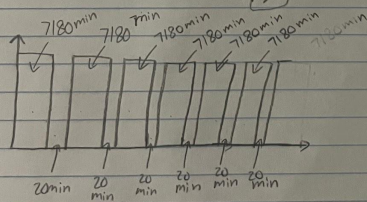 7180min
7180 min
7180min
7180min
7180min
7180min
7180min
20min
20 min
20 min
20 min
20 min
20 min